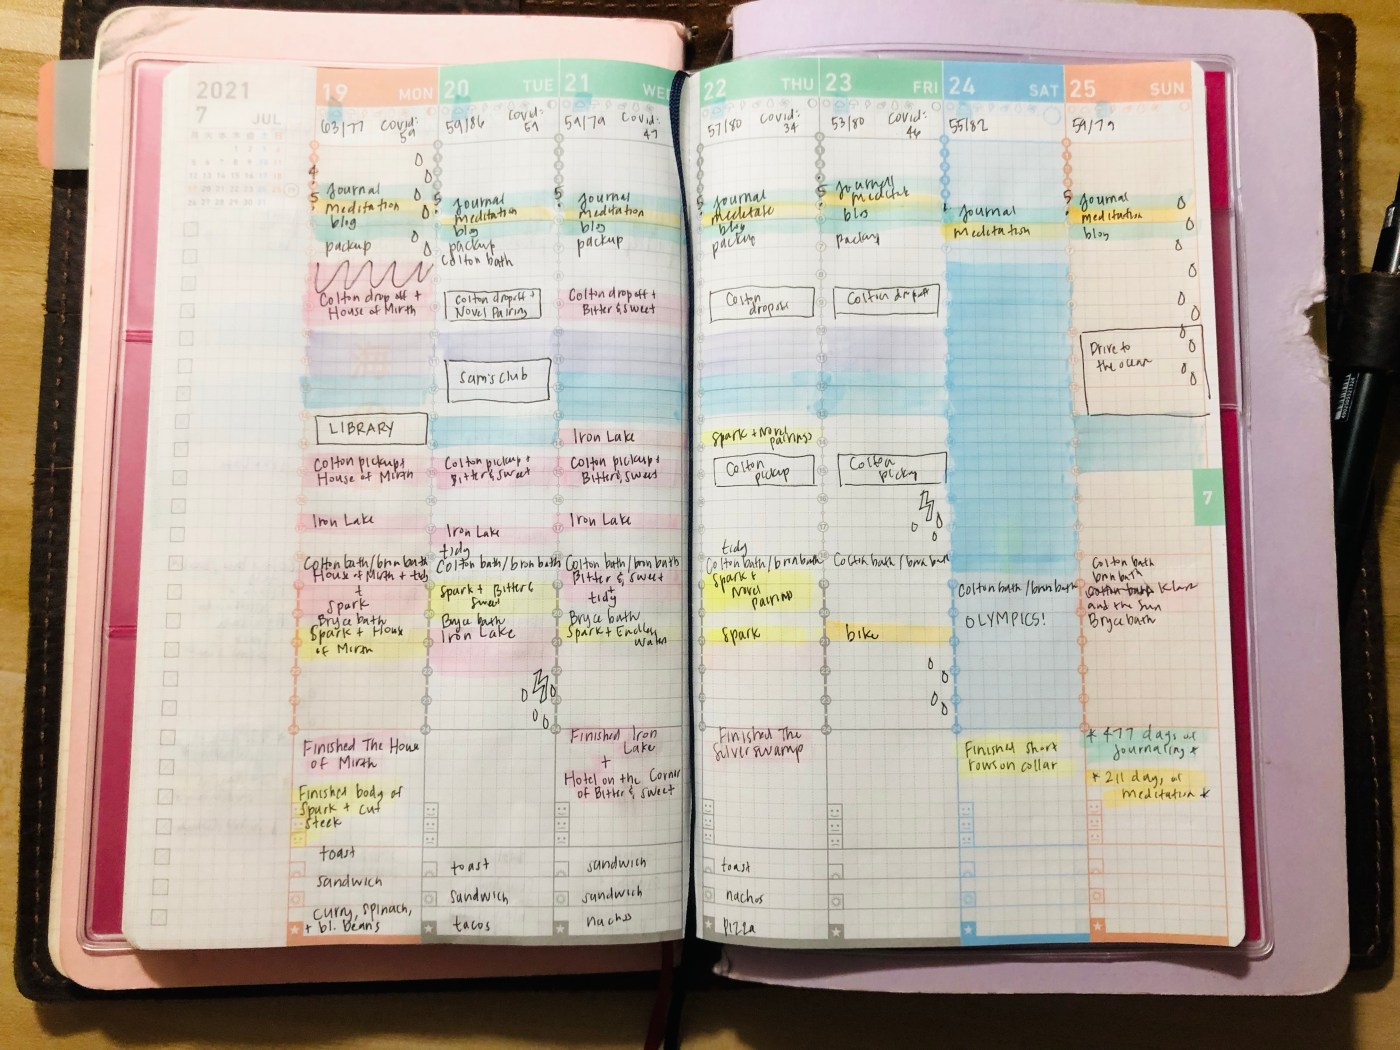 2021
7 JUL
19 MON
63/77 Covid:
59
4
5
Journal
meditation
blog
packup
Colton drop off +
House of Mirth
LIBRARY
Colton pickup +
House of Mirth
Iron Lake
Colton bath/bron bath
House of Mirth + tidy
+
Spark
Bryce bath
Spark + House
of Mirth
Finished The House
of Mirth
Finished body of
Spark + cut
steek
toast
sandwich
curry, spinach,
+ bl. beans
20 TUE
59/86 Covid:
59
5
Journal
meditation
blog
packup
Colton bath
Colton dropoff +
Novel Pairing
Sam's Club
Colton pickup +
Bitter & Sweet
Iron Lake
tidy
Colton bath/bron bath
Spark + Bitter &
Sweet
Bryce bath
Iron Lake
toast
sandwich
tacos
21 WED
59/79 Covid:
47
5
Journal
meditation
blog
packup
Colton drop off +
Bitter & Sweet
Iron Lake
Colton pickup +
Bitter & Sweet
Iron Lake
Colton bath/bron bath
Bitter & Sweet
+
tidy
Bryce bath
Spark + Endless
Water
Finished Iron
Lake
+
Hotel on the Corner
of Bitter & Sweet
sandwich
sandwich
nachos
22 THU
57/80 Covid:
34
5
Journal
meditate
blog
packup
Colton
dropoff
Spark + Novel
pairings
Colton
pickup
tidy
Colton bath/bron bath
Spark +
Novel
Pairing
Spark
Finished The
Silver Swamp
toast
nachos
pizza
23 FRI
53/80 Covid:
46
5
Journal
meditate
blog
packup
Colton dropoff
Colton
pickup
Colton bath/bron bath
bike
24 SAT
55/82
Journal
meditation
Colton bath/bron bath
OLYMPICS!
Finished short
rows on collar
25 SUN
59/79
5
Journal
meditation
blog
Drive to
the ocean
Colton bath
bron bath
Klara
and the Sun
Bryce bath
* 477 days of
journaling *
* 211 days of
meditation *
7